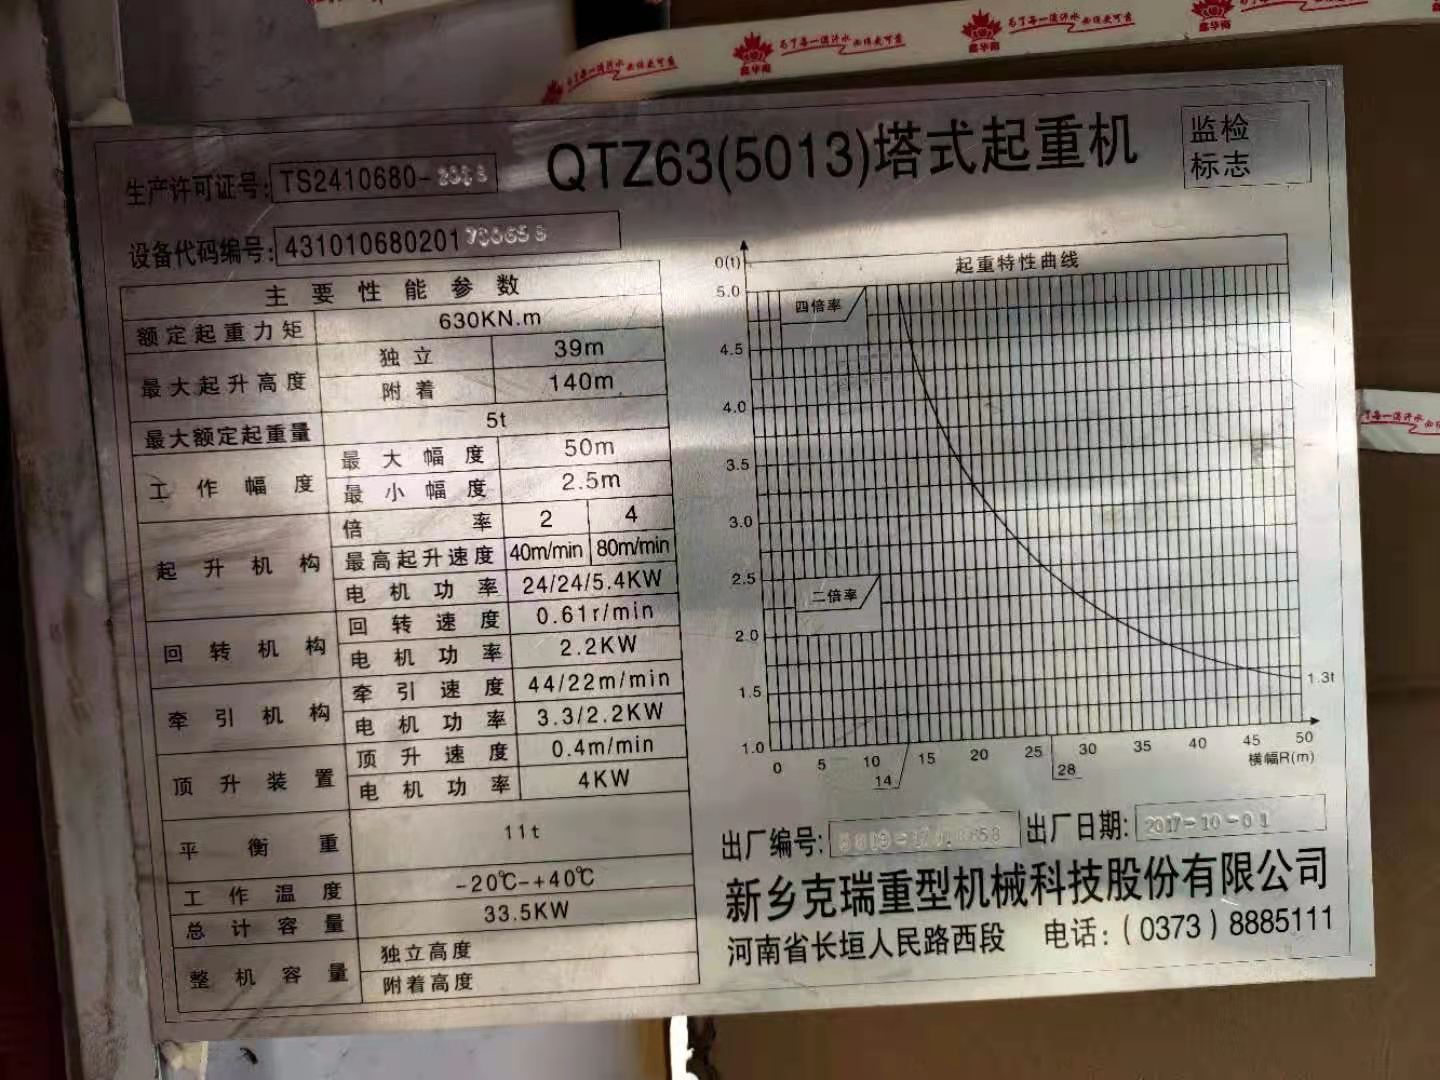 为了每一滴汗水 必须更可靠
鑫华南
QTZ63(5013)塔式起重机
监检
标志
生产许可证号: TS2410680-
设备代码编号: 431010680201
主要性能参数
额定起重力矩 630KN.m
最大起升高度 独立 39m
附着 140m
最大额定起重量 5t
工作幅度 最大幅度 50m
最小幅度 2.5m
起升机构 倍率 2 4
最高起升速度 40m/min 80m/min
电机功率 24/24/5.4KW
回转机构 回转速度 0.61r/min
电机功率 2.2KW
牵引机构 牵引速度 44/22m/min
电机功率 3.3/2.2KW
顶升装置 顶升速度 0.4m/min
电机功率 4KW
平衡重 11t
工作温度 -20℃-+40℃
总计容量 33.5KW
整机容量 独立高度
附着高度
0(t) 起重特性曲线
5.0 四倍率
4.5
4.0
3.5
3.0
2.5 二倍率
2.0
1.5 1.3t
1.0
0 5 10 15 20 25 30 35 40 45 50
14 28 横幅R(m)
出厂编号: 出厂日期: 2017-10-01
新乡克瑞重型机械科技股份有限公司
河南省长垣人民路西段 电话:(0373)8885111